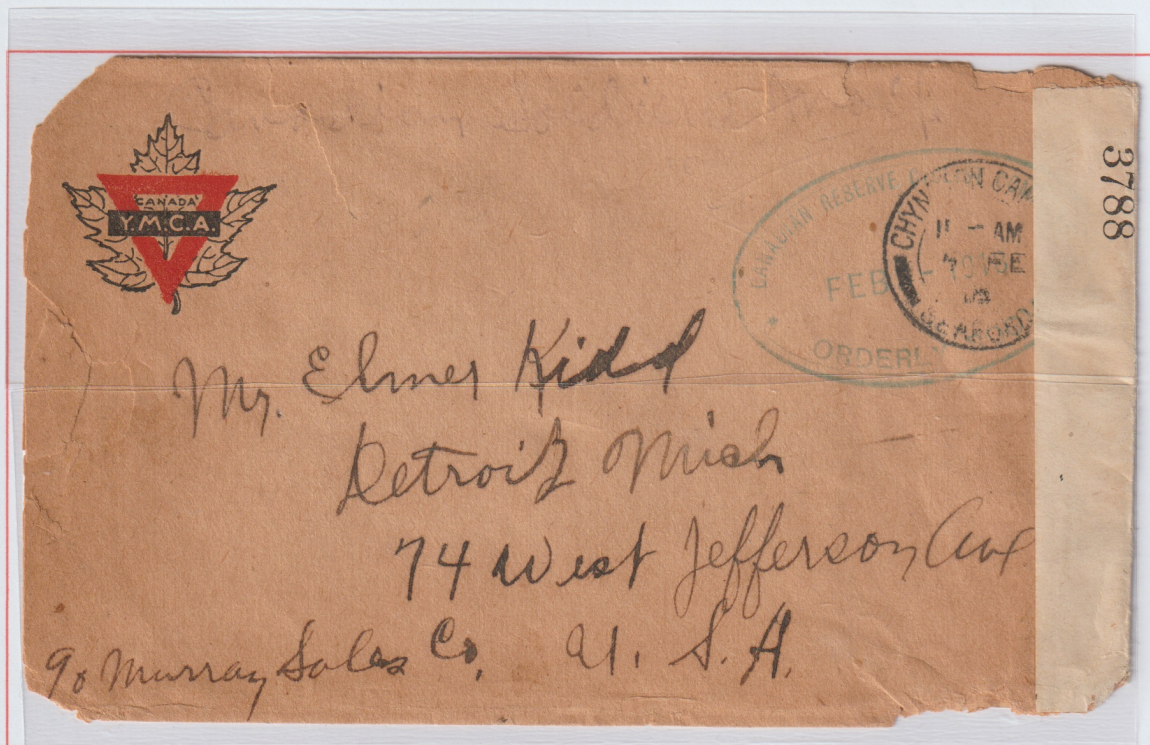 CANADA
Y.M.C.A.
3788
CANADIAN RESERVE
FEB
ORDERL
CAM
11 - AM
FE
SEAFORD
Mr. Elmer Kidd
Detroit Mich
74 West Jefferson Ave
c/o Murray Sales Co. U. S. A.